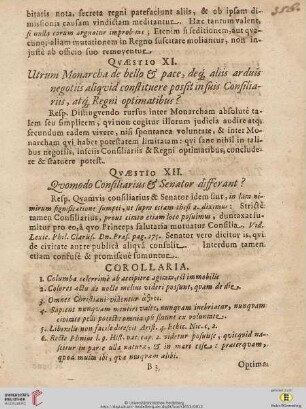 bitatis nota, secreta regni patefaciunt aliis, & ob ipsam di-
missionis causam vindictam meditantur. Hæc tantum valent,
si nulla eorum arguatur improbitas; Etenim si seditionem, aut quæ-
cunq; aliam mutationem in Regno suscitare moliantur, non in-
juste ab officio suo removentur.
QUÆSTIO XI.
Utrum Monarcha de bello & pace, deq; aliis arduis
negotiis aliqvid constituere possit in suis Consilia-
riis, atq; Regni optimatibus?
Resp. Distingvendo rursus inter Monarcham absolute ta-
lem seu simplicem, qvi non cogitur illorum judicia audire atq;
secundum eadem vivere, nisi spontanea voluntate, & inter Mo-
narcham qvi habet potestatem limitatam: qvi sane nihil in ta-
libus negotiis, insciis Consiliariis & Regni optimatibus, conclude-
re & statuere potest.
QUÆSTIO XII.
Qvomodo Consiliarius & Senator differant?
Resp. Qvamvis consiliarius & Senator idem sint, in lata no-
minum significatione sumpti, ut supra etiam ibid. diximus: Strictè
tamen Consiliarius, prout etiam eo loco posuimus, duntaxat su-
mitur pro eo, qvo Princeps salutaria mutuatur Consilia. Vid.
Lexic. Phil. Clariss. Dn. Pras. pag. 175. Senator vero dicitur is,
qvi civitate autre publicâ aliqvâ consulit. Interdum tamen
etiam confusè & promiscuè sumuntur.
COROLLARIA.
1. Columba celerrimè ab accipitre agitata, est immobilis
2. Colores actu de nocte melius videri possunt, quam de die.
3. Omnes Christiani videntur
4. Sapiens nunquam mentiri valet, nunquam inebriatur, nunquam
civitate pelli potest: omnia ipsi sciunt ex voluntate
5. Liberalis non facile ditescit Arist. 4. Ethic. Nic. c. 2.
6. Recte Plinius l. 9. Hist. nat. cap. 2. videtur posuisse, quicquid na-
scitur in parte ulla naturæ, est in mari esse: præterquam,
quod multa ibi, quæ nusquam alibi.
B 3
Optima: